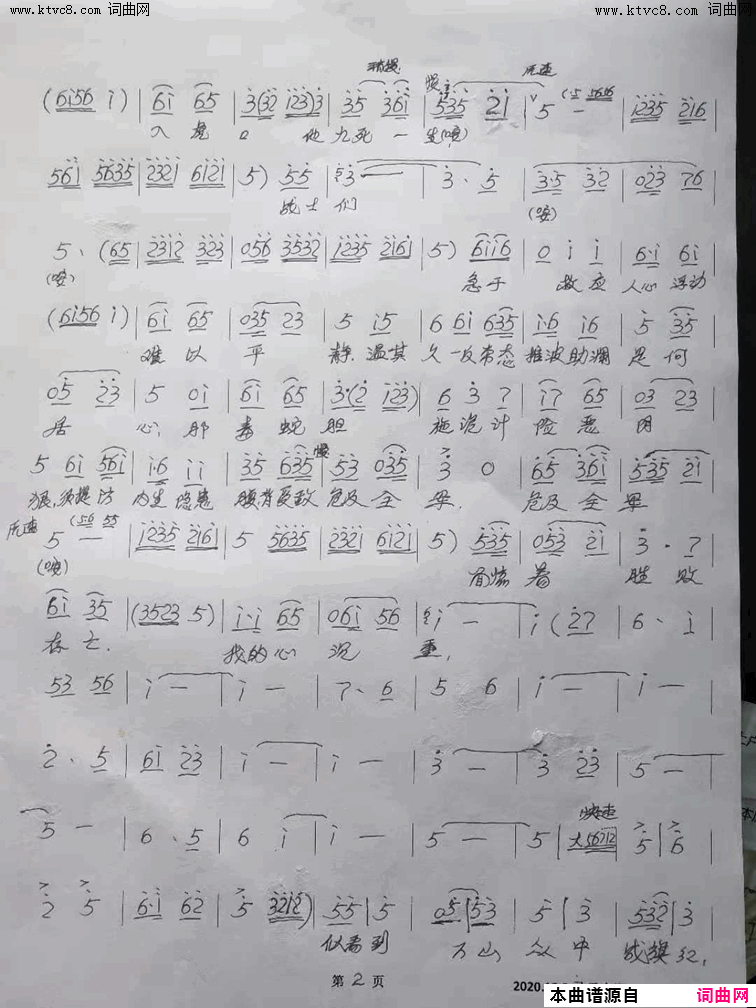 www.ktvc8.com 词曲网 www.ktvc8.com 词曲网
稍慢 慢 元速
(6i56 i) | 6i 65 | 3(32 123)3 | 35 36i | 535 2i | 5 — | 1235 216 |
入虎口 他九死一生(啊)
56i 5635 | 2321 6121 | 5) 55 | 3 — | 3· 5 | 3·5 32 | 023 76 |
战士们 (啊)
5· (65 | 2312 323 | 056 3532 | 1235 216i | 5) 6ii6 | 0 i i | 6·i 6i |
(啊) 急于救应人心浮动
(6i56 i) | 6i 65 | 035 23 | 5 i5 | 6 6i 635 | i·6 i6 | 5 35 |
难以平静,温其久一反常态推波助澜是何
05 23 | 5 0i | 6i 65 | 3·(2 123) | 6 3 7 | i7 65 | 03 23 |
居心,那毒蛇胆施诡计险恶用
5 6i 56i | i·6 ii | 35 635 | 53 035 | 3 0 | 65 36i | 535 2i |
狠,须提防内生隐患腹背受敌危及全军.危及全军
元速
5 — | 1235 216i | 5 5635 | 2321 6121 | 5) 535 | 053 2i | 3· 7 |
(啊) 面临着胜败
6i 35 | (3523 5) | i·i 65 | 06i 56 | i — | i (27 | 6· i |
存亡. 我的心沉重,
53 56 | i — | i — | 7· 6 | 5 6 | i — | i — |
2· 5 | 6i 23 | i — | i — | 3 — | 3 23 | 5 — |
快速
5 — | 6· 5 | 6 i | i — | 5 — | 5 | 大5671 2 | 5 | 6 |
2 5 | 6·i 62 | 5 3212) | 55 | 5 | 05 | 53 | 5 | 3 | 532 | 3 |
似看到万山丛中战旗红,
第 2 页
2020.
本曲谱源自 词曲网